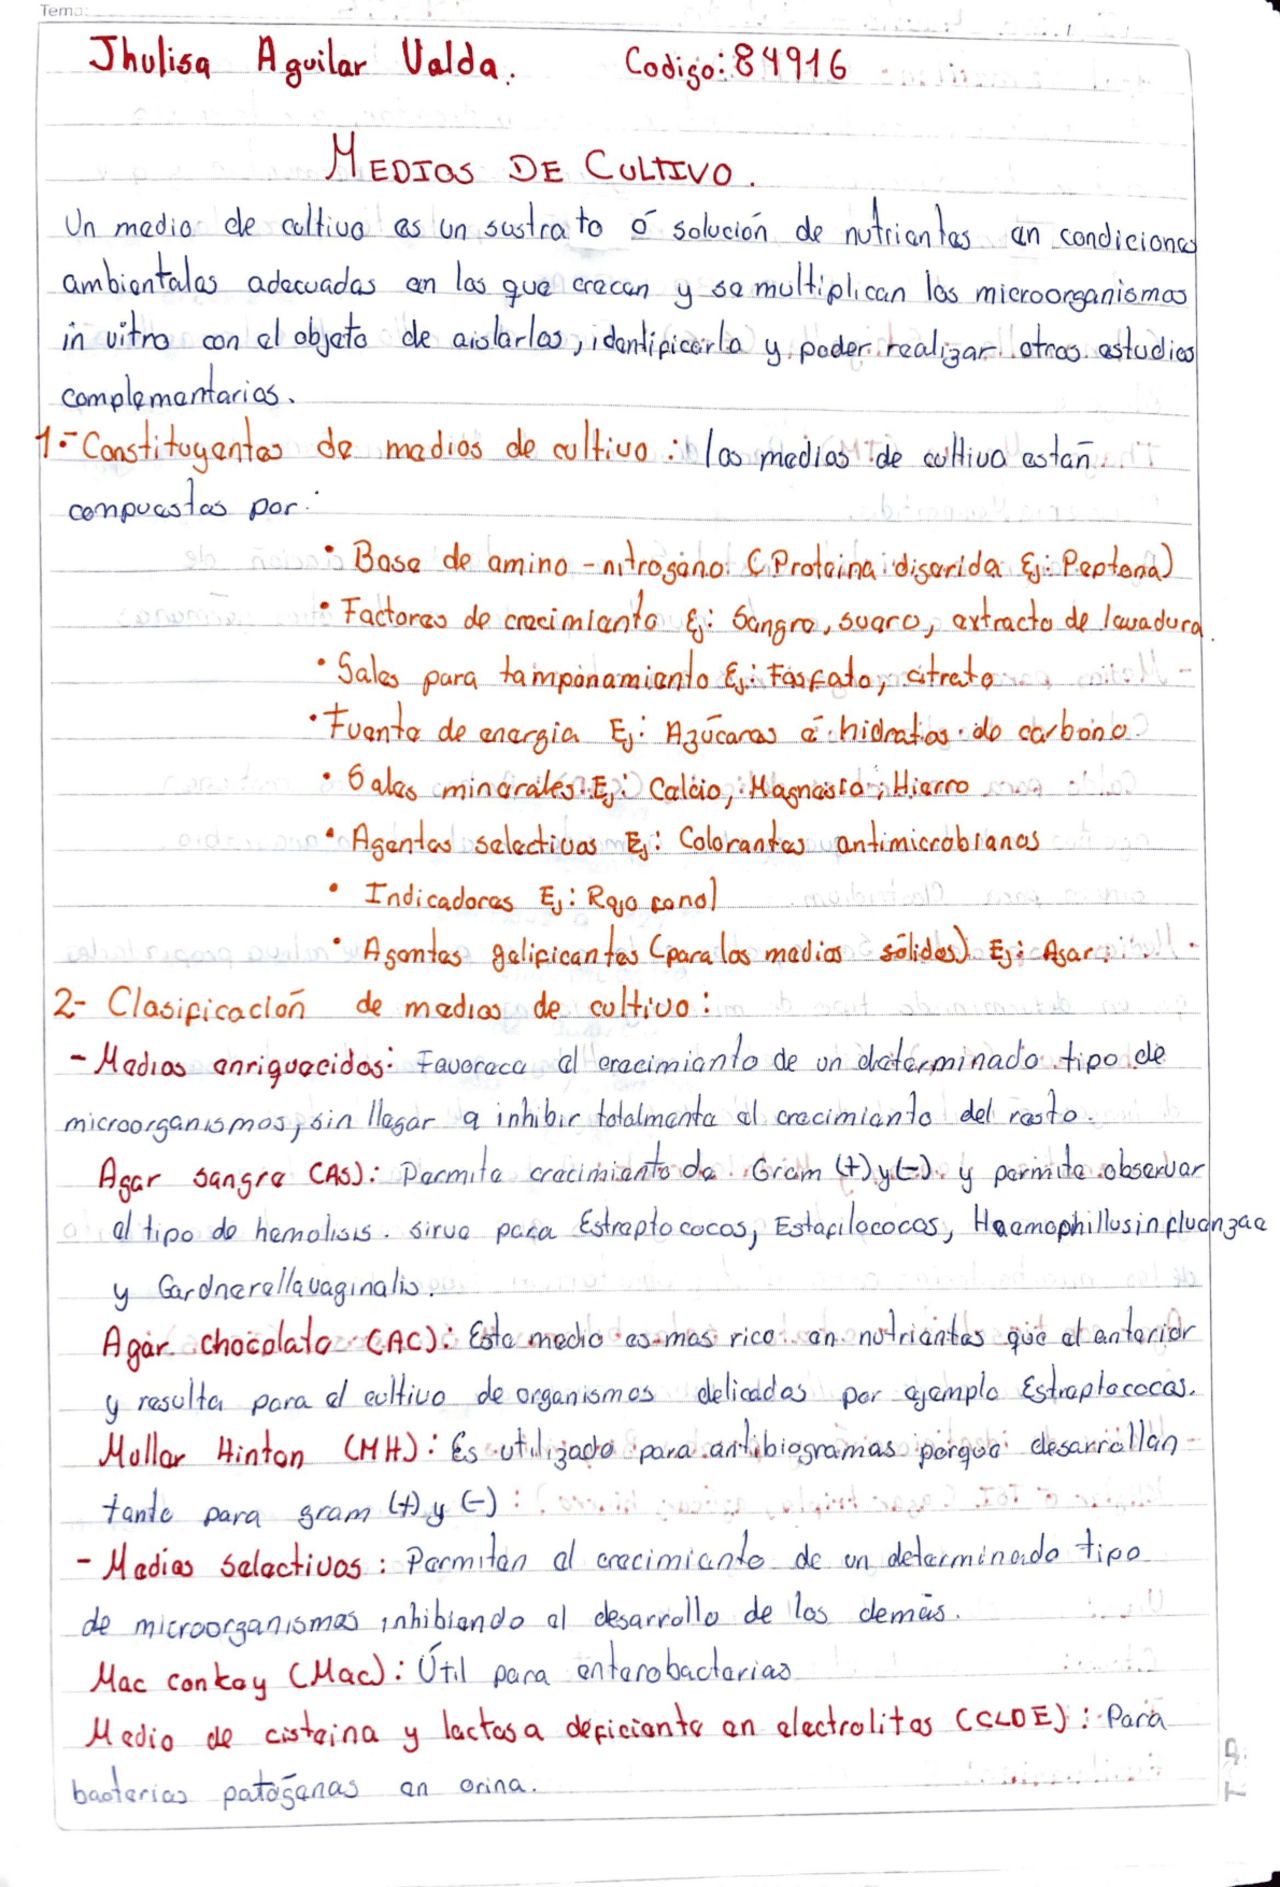 Tema:
Jhulisa Aguilar Valda. Codigo: 84916
MEDIOS DE CULTIVO.
Un medio de cultivo es un sustrato ó solución de nutrientes en condiciones
ambientales adecuadas en los que crecen y se multiplican los microorganismos
in vitro con el objeto de aislarlos, identificarlo y poder realizar otros estudios
complementarios.
1.- Constituyentes de medios de cultivo: los medios de cultivo están
compuestos por:
• Base de amino - nitrogeno (Proteina digerida Ej: Peptona)
• Factores de crecimiento Ej: Sangre, suero, extracto de levadura.
• Sales para tamponamiento Ej: Fosfato, citrato
• Fuente de energia Ej: Azúcares é hidratos de carbono
• Sales minerales Ej: Calcio, Magnesio, Hierro
• Agentes selectivos Ej: Colorantes antimicrobianos
• Indicadores Ej: Rojo fenol
• Agentes gelificantes (para los medios sólidos) Ej: Agar.
2- Clasificación de medios de cultivo:
- Medios enriquecidos: Favorece el crecimiento de un determinado tipo de
microorganismos, sin llegar a inhibir totalmente el crecimiento del resto.
Agar sangre (AS): Permite crecimiento de Gram (+) y (-) y permite observar
el tipo de hemolisis. sirve para Estreptococos, Estafilococos, Haemophillus influenzae
y Gardnerella vaginalis.
Agar chocolate (AC): Este medio es mas rico en nutrientes que el anterior
y resulta para el cultivo de organismos delicados por ejemplo Estreptococos.
Muller Hinton (MH): Es utilizado para antibiogramas porque desarrollan
tanto para gram (+) y (-):
- Medios selectivos: Permiten el crecimiento de un determinado tipo
de microorganismos inhibiendo el desarrollo de los demás.
Mac conkey (Mac): Útil para enterobacterias
Medio de cisteina y lactosa deficiente en electrolitos (CLDE): Para
bacterias patogenas en orina.